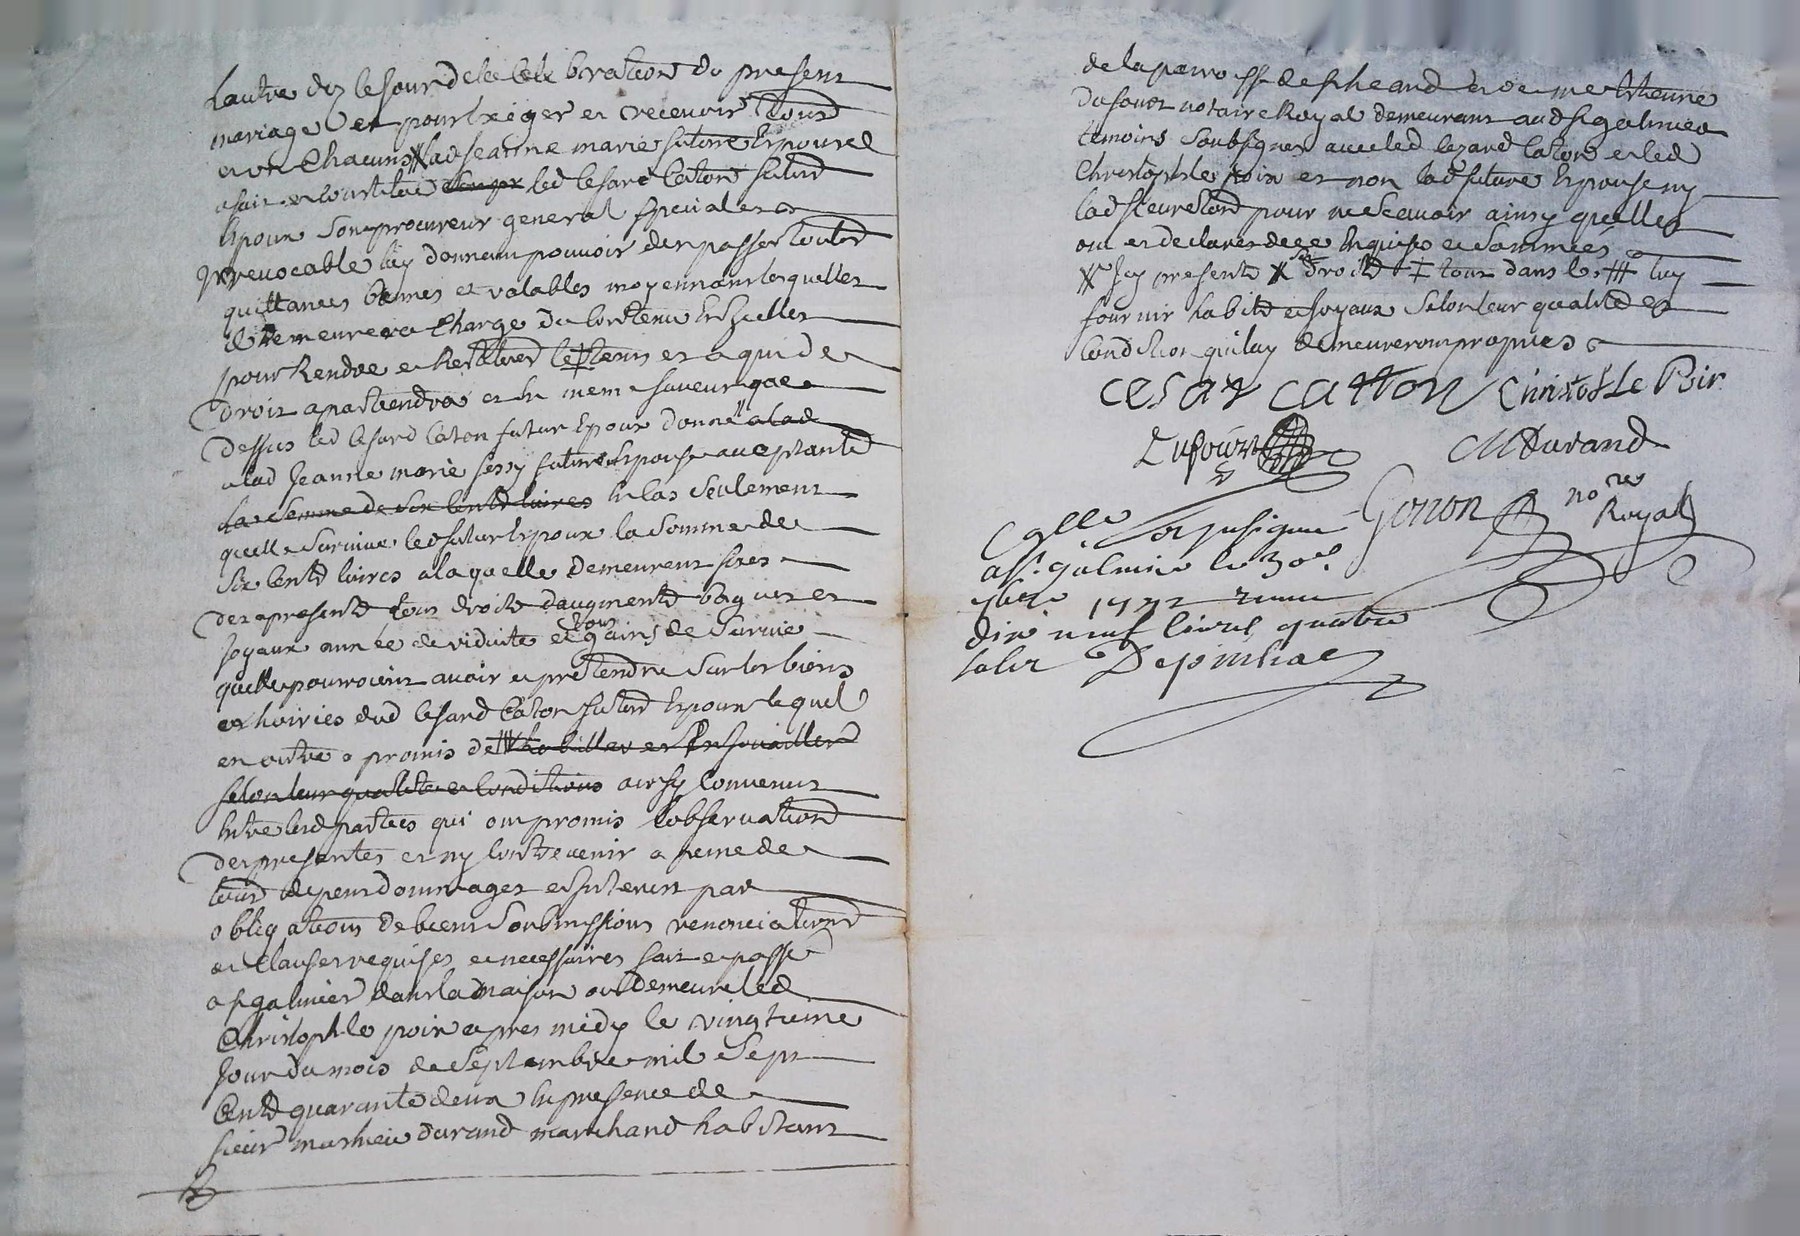 Lautre dez le jour de la celebration du present
mariage et pour exiger et recevoir tours
lad Jeanne marie future Epouse
a fait et constitué led Cesard Caton futurd
Epoux son procureur general special et
Irrevocable luy donnant pouvoir den passer toutes
quittances bonnes et valables moyennant lesquelles
il demeurera chargé du contenu En Icelles
pour Rendre et Restituer le ǂ tems et a qui de
droit apartiendra et En meme faveur que
dessus led Cesard Caton futur Epoux donne a lad
a lad Jeanne marie future Epouse acceptante
la somme de six centd livres En cas seulement
quelle survive led futur Epoux la somme de
six centd livres a laquelle demeurent fixes
des apresent tous droits daugmentd bagues et
joyaux année de viduite et tous gains de survie
quelle pourroient avoir et pretendre sur les biens
et hoiries dud Cesard Caton futurd Epoux lequel
en outre a promis de habiller et Enjoailler
selon leur qualité et conditions ainsy convenus
Entre lesd parties qui ont promis lobservationd
des presentes et ny contrevenir a peine de
tous depens dommages et Interest par
obligations de biens soubmissions renonciationd
et clauses requises et necessaires fait et passé
a st galmier dans la maison ou demeure led
Christophle poix apres midy le vingtieme
Jour du mois de Septembre mil sept
Centd quarante deux En presence de
sieur mathieu durand marchand habitant
de la parroisse de et de me Etienne
Dufour notaire Royal demeurant aud st galmier
temoins soubsignes avec led Cezard Caton et led
Christophle poix et non lad future Epouse ny
lad pour ne scavoir ainsy quelles
ont et declarer de ce Enquises et sommées
presente droits ǂ tour dans les luy
fournir habitd et joyaux selon leur qualité et
Condition qui luy demeureront propres
cesar catton Christofle Poix
Dufour MDurand
Gonon nore Royal
Collé
a st galmier le 30e
7bre 1742 Reçu
dix neuf livres quatre
sols Depinhac